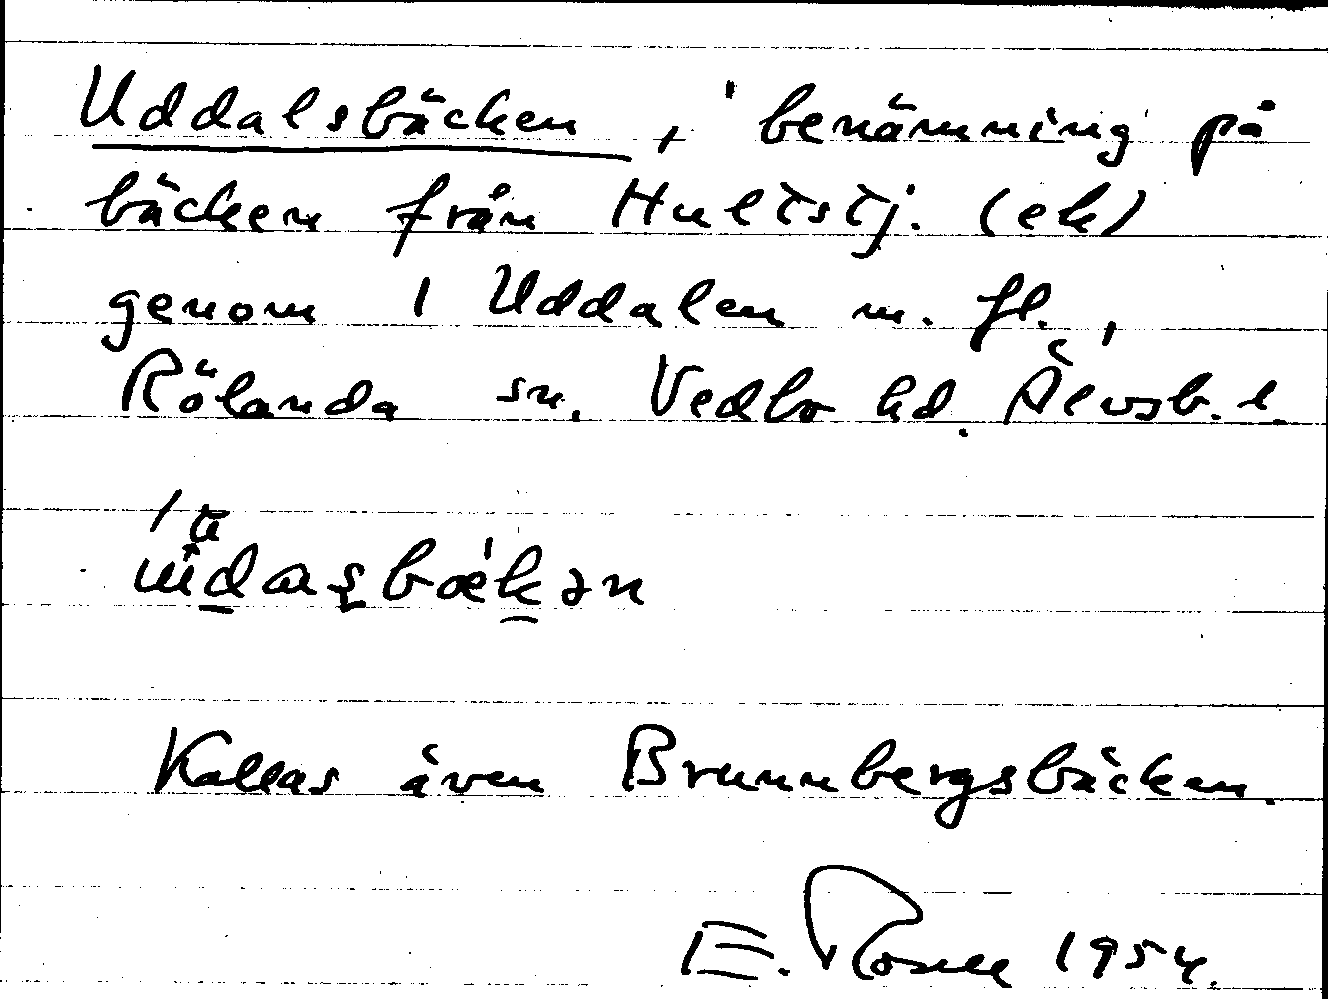 Uddalsbäcken, benämning på
bäcken från Hultstj. (ek)
genom 1 Uddalen m. fl.,
Rölanda sn. Vedbo hd. Älvsb. l.
Kallas även Brunnbergsbäcken.
E. 1954.